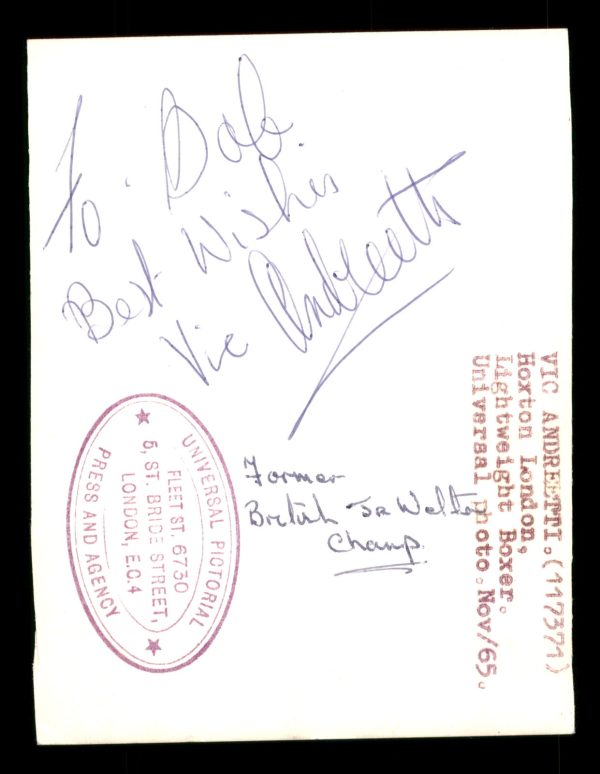 To Bob.
Best Wishes
Vic Andreetti
Former
British Jr Welter
Champ.
VIC ANDREETTI.(117371)
Hoxton London,
Lightweight Boxer.
Universal photo.Nov/65.
UNIVERSAL PICTORIAL
FLEET ST. 6730
5, ST. BRIDE STREET,
LONDON, E.C.4
PRESS AND AGENCY